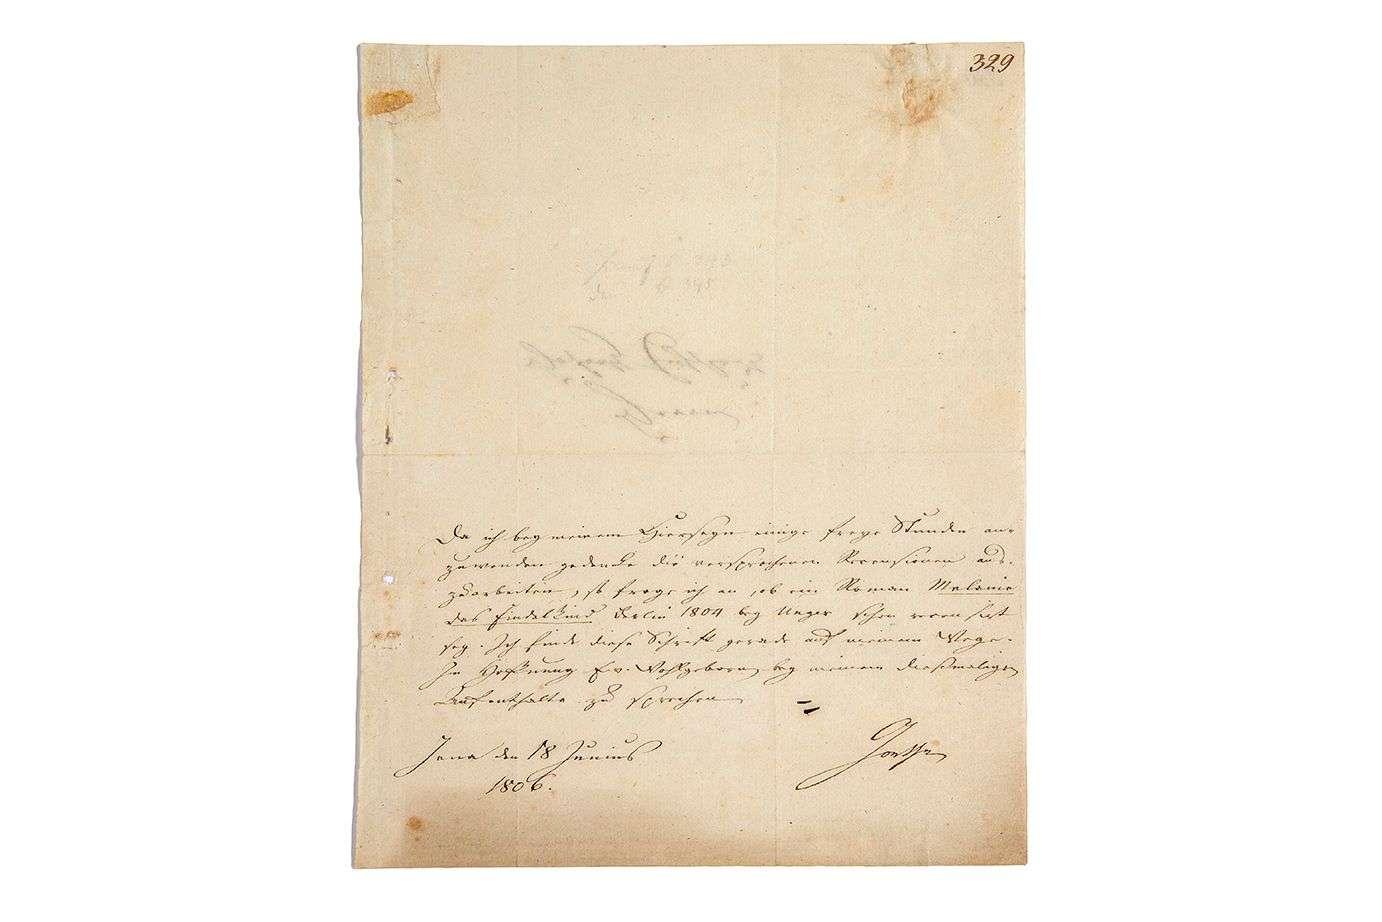 329
Da ich bey meinem Hierseyn einige freye Stunden an-
zuwenden gedencke die versprochenen Recensionen aus-
zuarbeiten, so frage ich an, ob ein Roman Melanie
das Findelkind Berlin 1804 bey Unger schon recensirt
sey. Ich finde diese Schrift gerade auf meinem Wege.
In Hoffnung Ew. Wohlgeboren bey meinem diesmaligen
Aufenthalte zu sprechen
Jena den 18 Junius
Goethe
1806.